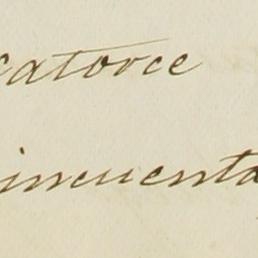 catorce
cincuenta